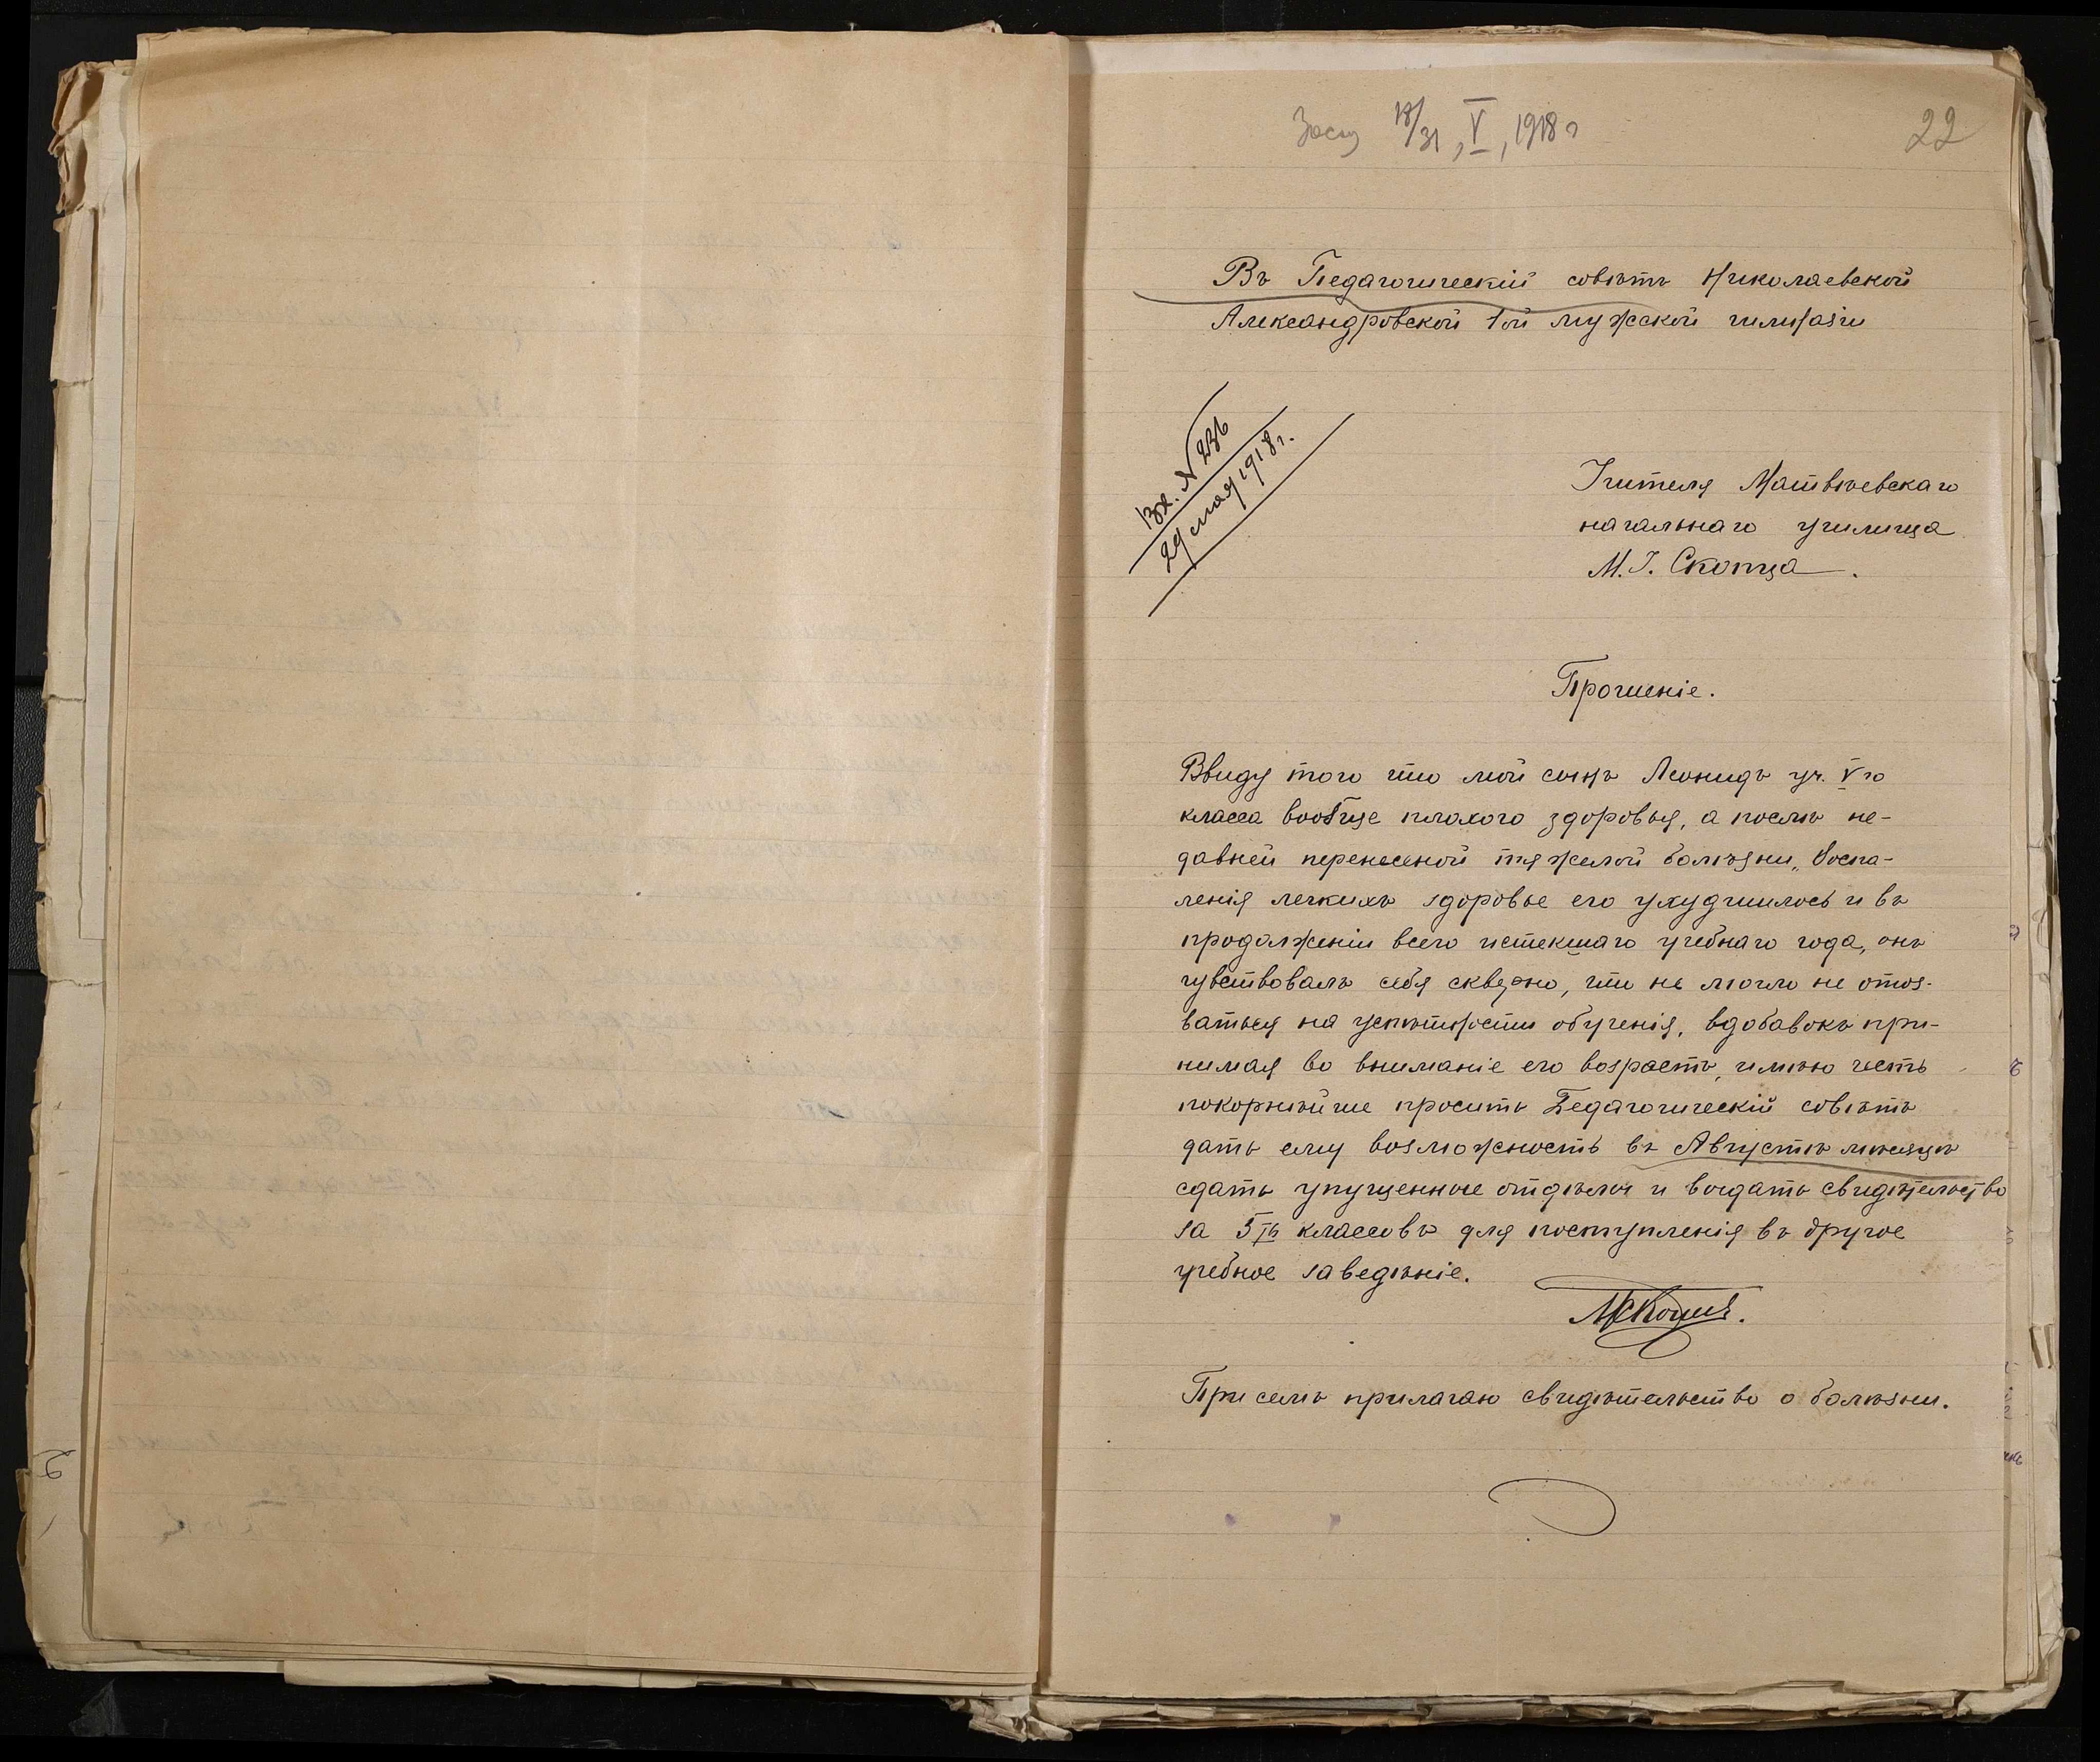 Засѣд 18/31, V, 1918 г
22
Въ Педагогическій совѣтъ Николаевской
Александровской 1ой мужской гимназіи
Вх. № 236
29 мая 1918 г.
Учителя Матвѣевскаго
начальнаго училища
М. І. Скопца.
Прошеніе.
Ввиду того что мой сынъ Леонидъ уч. V го
класса вообще плохого здоровья, а послѣ не-
давней перенесеной тяжелой болѣзни „Воспа-
ленія легкихъ здоровье его ухудшилось и въ
продолженіи всего истекшаго учебнаго года, онъ
чувствовалъ себя скверно, что не могло не отоз-
ваться на успѣшности обученія, вдобавокъ при-
нимая во вниманіе его возрастъ, имѣю честь
покорнѣйше просить Педагогическій совѣтъ
дать ему возможность въ Августѣ мѣсяцѣ
сдать упущенные отдѣлы и выдать свидѣтельство
за 5ть классовъ для поступленія въ другое
учебное заведѣніе.
МСкопецъ.
При семъ прилагаю свидѣтельство о болѣзни.